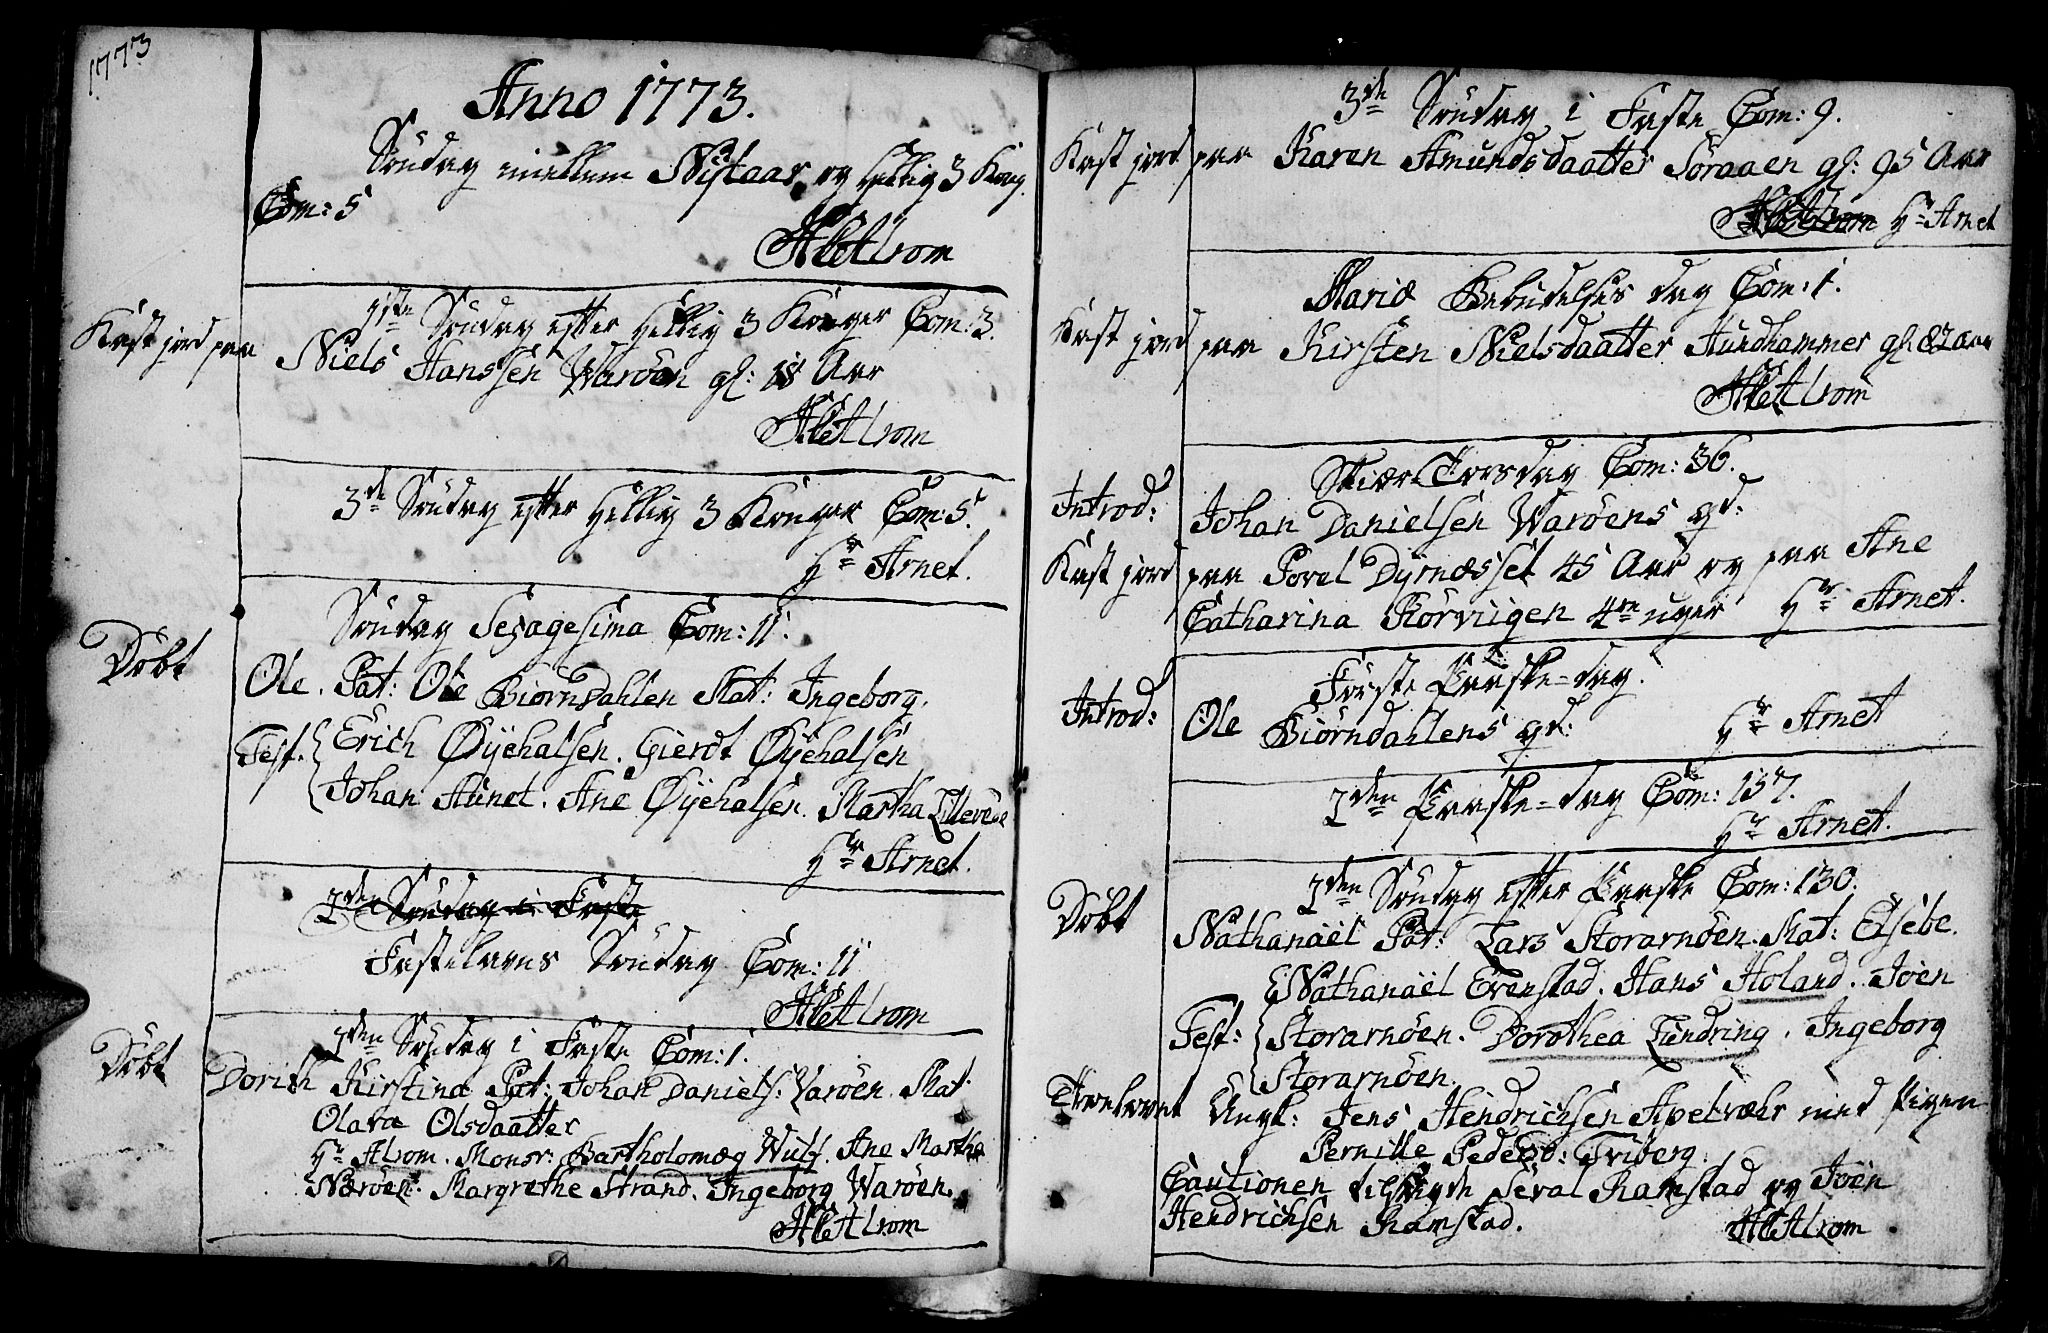 1773
Anno 1773.
Søndag imellem Nÿtaar og Hellig 3 Kong.
Com: 5
HPetAlrom
1ste Søndag efter Hellig 3 Konger Com: 3.
Kast jord paa Niels Hanssen Warøen gl: 18 Aar
HPetAlrom
3de Søndag efter Hellig 3 Konger Com: 5.
Hr Arnet.
Søndag Sexagesima Com: 11.
Døbt
Ole. Pat: Ole Biørndahlen Mat: Ingeborg.
Test. Erich Øÿehalsen. Gierdt Øÿehalsen
Johan Aunet. Ane Øÿehalsen. Martha Lillevole
Hr Arnet.
2den Søndag i Faste
Fastelavns Søndag Com: 11
HPetAlrom
2den Søndag i Faste Com: 1.
Døbt
Dorith Kirstina Pat: Johan Daniels: Varøen. Mat.
Olava Olsdaatter
Hr Alrom. Monsr: Bartholomæg Wulf. Ane Martha
Nærøen. Margrethe Strand. Ingeborg Warøen.
HPetAlrom
3de Søndag i Faste Com: 9.
Kast jord paa Karen Amundsdaatter Søraaen gl: 95 Aar
HPetAlrom Hr Arnet
Mariæ Bebudelses dag Com: 1.
Kast jord paa Kirsten Nielsdaatter Hundhammer gl: 82 aar
HPetAlrom
Skiær-Torsdag Com: 36.
Introd: Johan Danielsen Warøens qd:
Kast jord paa Povel Dyrnæsset 45 Aar og paa Ane
Catharina Rørviigen 4re uger Hr Arnet.
Første Paaske-dag.
Introd: Ole Biørndahlens qd: Hr Arnet
2den Paaske-dag Com: 137.
Hr Arnet.
2den Søndag efter Paaske Com: 130.
Døbt
Nathanaël Pat: Lars Storarnøen. Mat: Elsebe.
Nathanaël Evenstad. Hans Holand. Joen
Test: Storarnøen. Dorothea Lundring. Ingeborg
Storarnøen.
Troelovet Ungk: Jens Hendrichsen Apelvæhr med Pigen
Pernille Pedersd: Triberg.
Cautionen tilsagde Seval Ramstad og Joen
Hendrichsen Ramstad. HPetAlrom